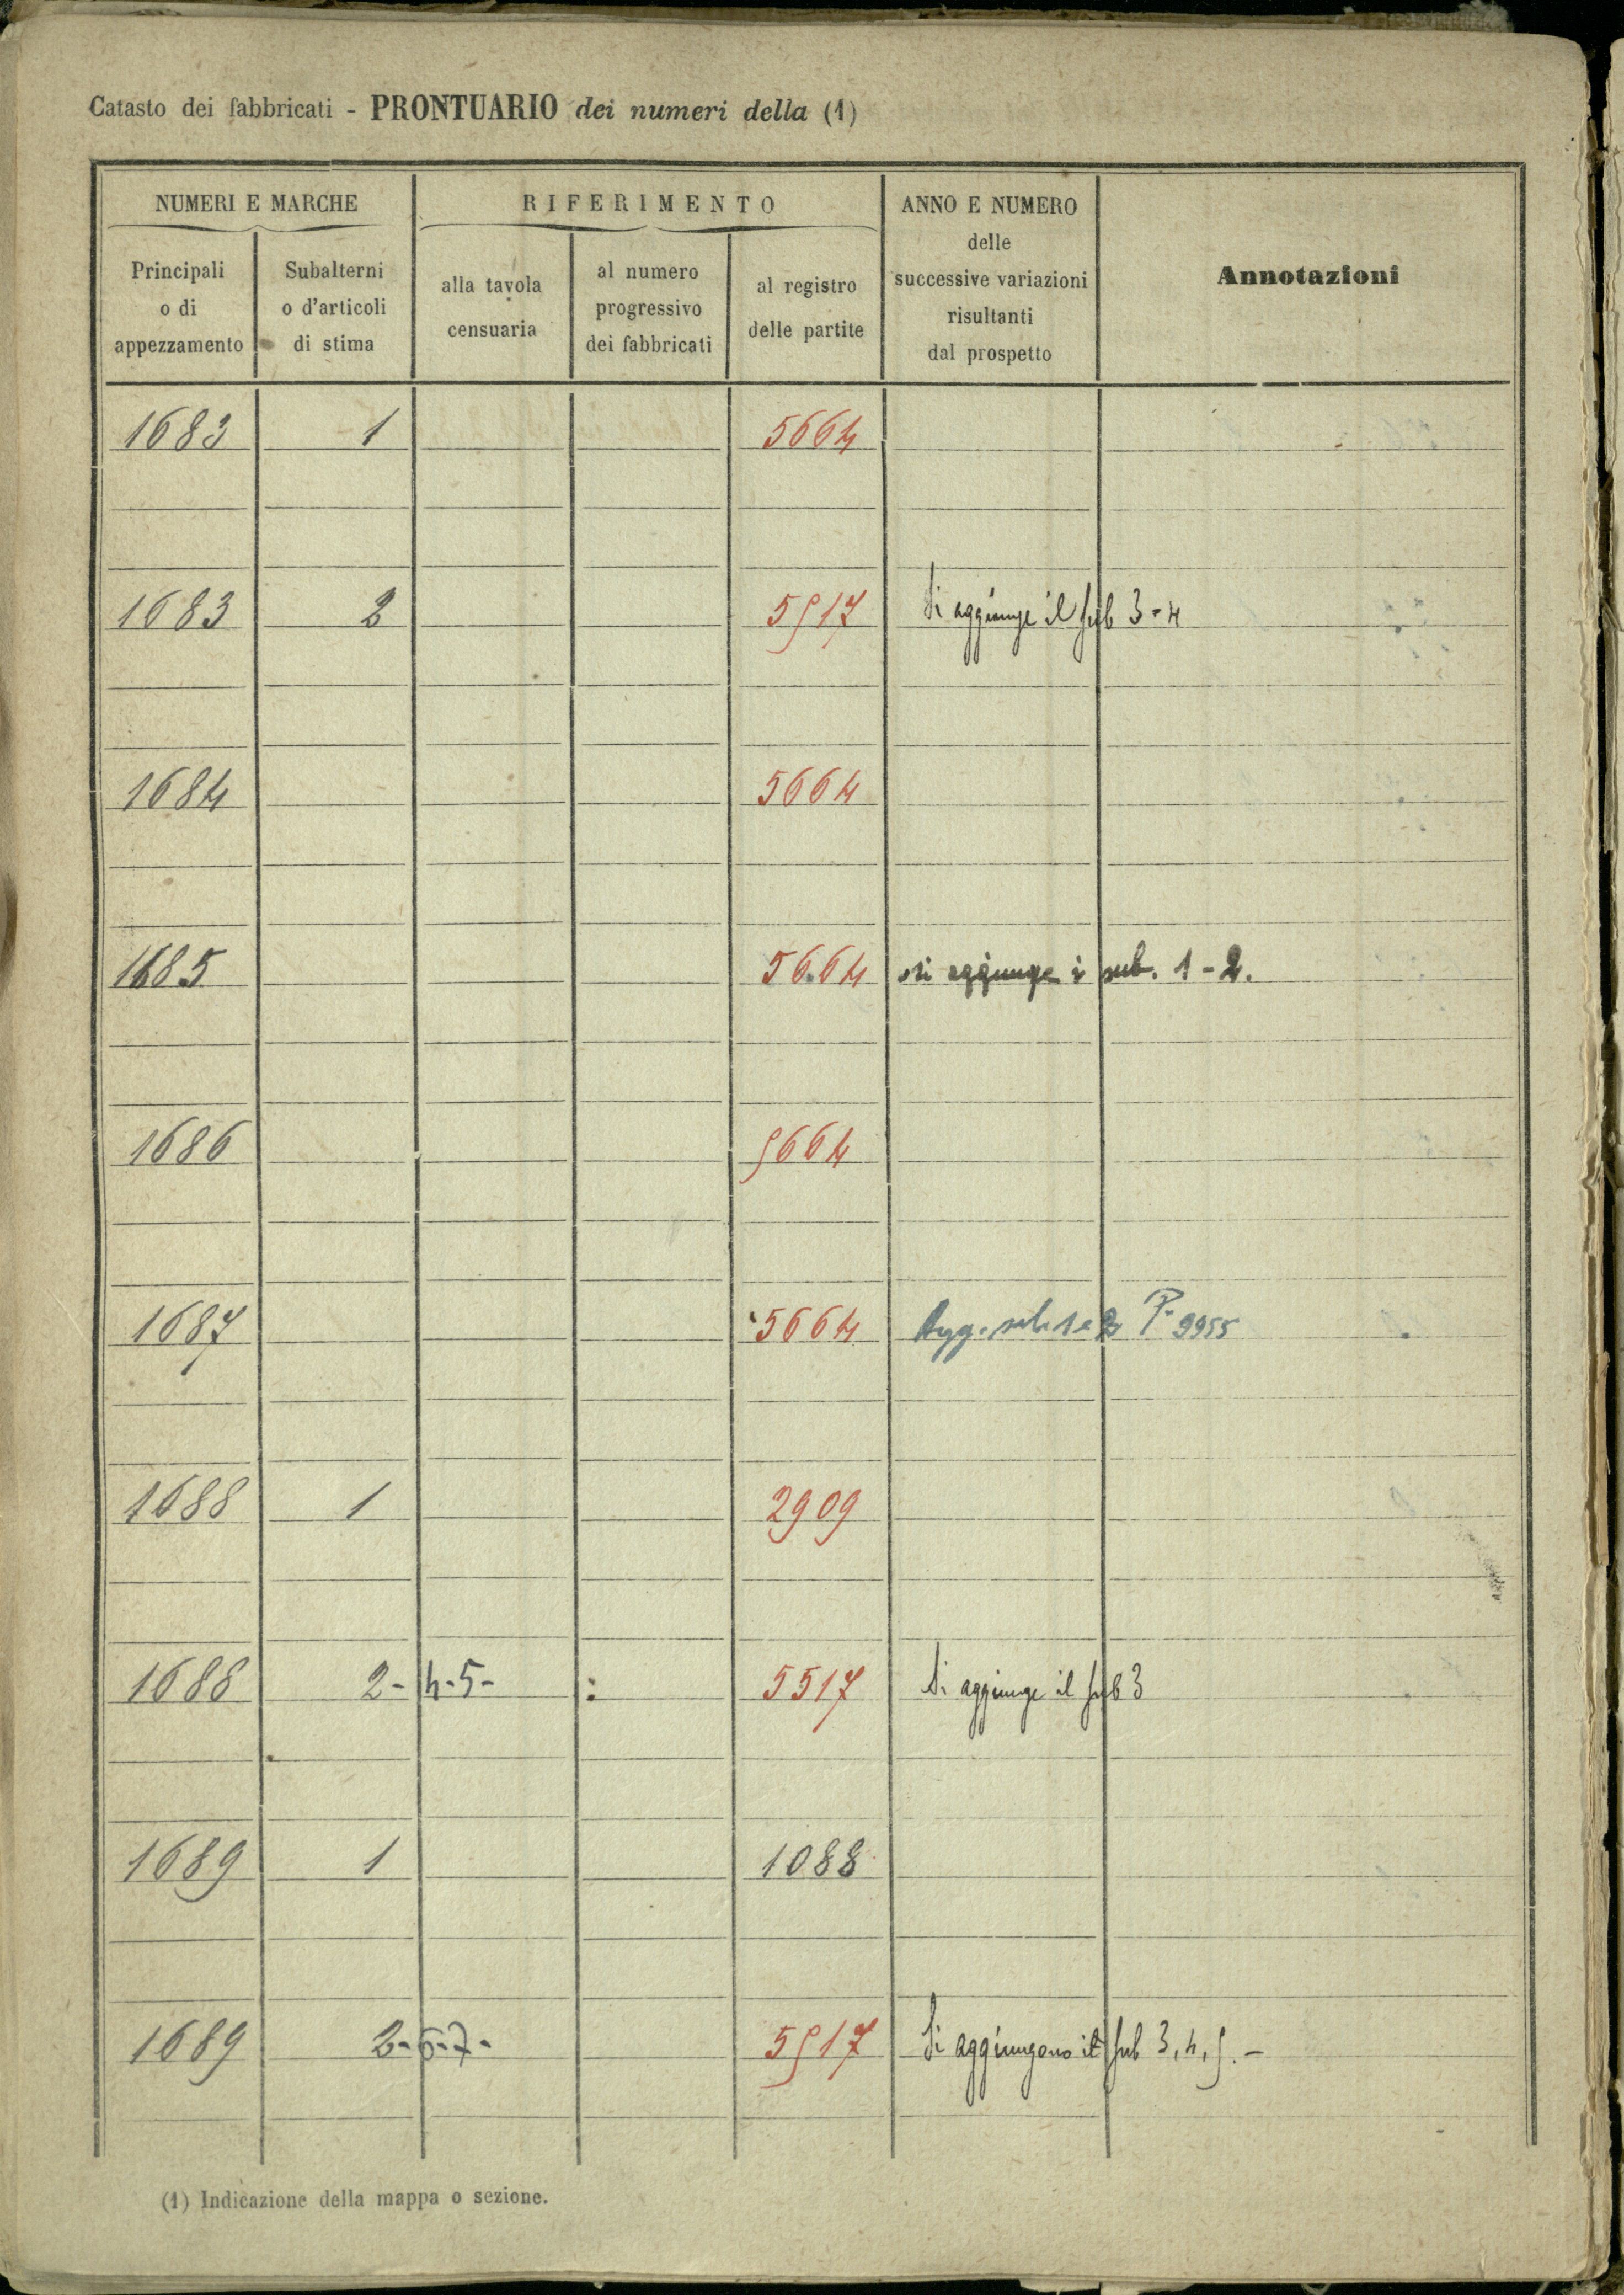 Catasto dei fabbricati - PRONTUARIO dei numeri della (1)
NUMERI E MARCHE
RIFERIMENTO
ANNO E NUMERO
delle
successive variazioni
risultanti
dal prospetto
Annotazioni
Principali
o di
appezzamento
Subalterni
o d'articoli
di stima
alla tavola
censuaria
al numero
progressivo
dei fabbricati
al registro
delle partite
1683 1 5664
1683 2 5517 Si aggiunge il sub 3-4
1684 5664
1685 5664 si aggiunge i sub. 1-2.
1686 5664
1687 5664 Agg. sub. 1 e 2 P. 9955
1688 1 2909
1688 2-4-5- : 5517 Si aggiunge il sub 3
1689 1 1088
1689 2-6-7- 5517 Si aggiungono il sub 3, 4, 5. -
(1) Indicazione della mappa o sezione.